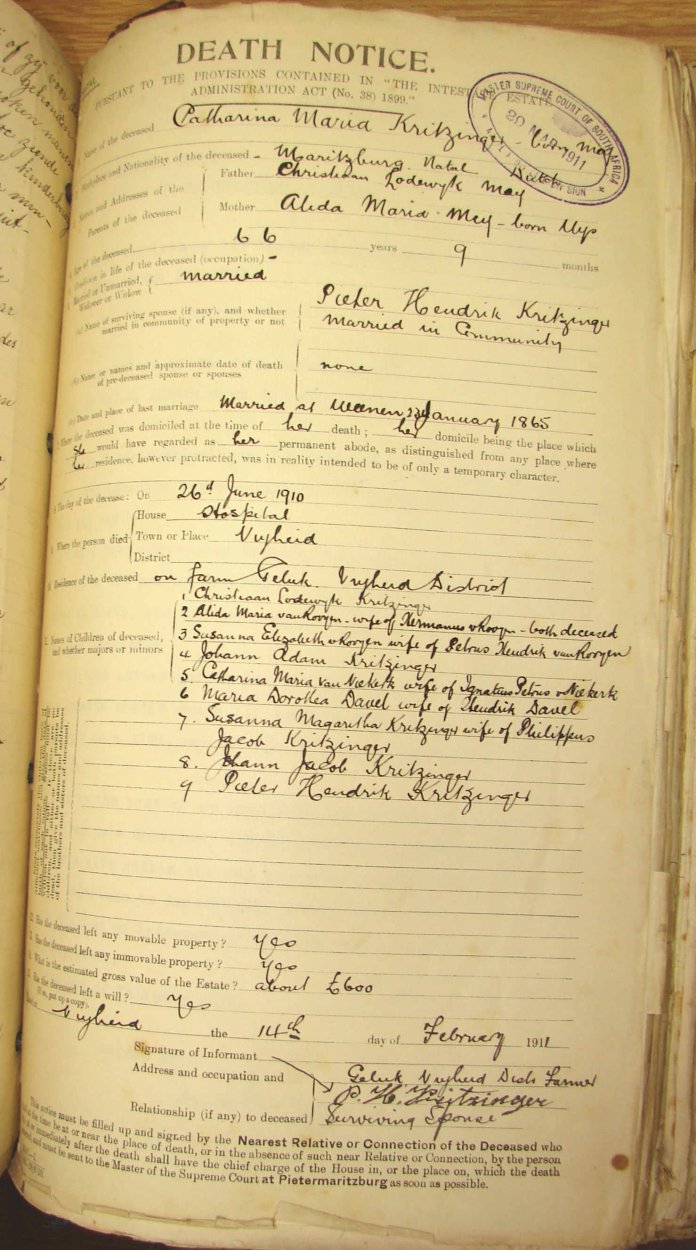 DEATH NOTICE.
PURSUANT TO THE PROVISIONS CONTAINED IN "THE INTESTATE ESTATES
ADMINISTRATION ACT (No. 38) 1899."
MASTER SUPREME COURT OF SOUTH AFRICA
20 MAR 1911
Name of the deceased Catharina Maria Kritzinger born Mey
Birthplace and Nationality of the deceased - Maritzburg. Natal
Names and Addresses of the Parents of the deceased
Father Christiaan Lodewyk Mey
Mother Alida Maria Mey - born Uys
Age of the deceased 66 years 9 months
Condition in life of the deceased (occupation) -
Married or Unmarried, Widower or Widow married
(a) Name of surviving spouse (if any), and whether married in community of property or not
Pieter Hendrik Kritzinger
Married in Community
(b) Name or names and approximate date of death of pre-deceased spouse or spouses none
(c) Date and place of last marriage Married at Weenen January 1865
Where the deceased was domiciled at the time of her death; her domicile being the place which
She would have regarded as her permanent abode, as distinguished from any place where
her residence, however protracted, was in reality intended to be only of a temporary character.
The day of the decease: On 26d June 1910
Where the person died
House Hospital
Town or Place Vryheid
District
Residence of the deceased on farm Geluk. Vryheid District
Names of Children of deceased, and whether majors or minors
1 Christiaan Lodewyk Kritzinger
2 Alida Maria van Rooyen - wife of Hermanus v Rooyen - both deceased
3 Susanna Elizabeth v Rooyen wife of Petrus Hendrik van Rooyen
4 Johann Adam Kritzinger
5. Catharina Maria van Niekerk wife of Ignatius Petrus v Niekerk
6 Maria Dorothea Davel wife of Hendrik Davel
7. Susanna Magaritha Kritzinger wife of Philippus
Jacob Kritzinger
8. Johann Jacob Kritzinger
9 Pieter Hendrik Kritzinger
of the brothers and sisters of deceased
Has the deceased left any movable property? Yes
Has the deceased left any immovable property? Yes
What is the estimated gross value of the Estate? about £600
Has the deceased left a will? Yes
(If so, put up a copy)
Dated at Vryheid the 14th day of February 1911
Signature of Informant
Address and occupation and Geluk Vryheid Dist. Farmer
P. H. Kritzinger
Relationship (if any) to deceased Surviving Spouse
This notice must be filled up and signed by the Nearest Relative or Connection of the Deceased who
at the time be at or near the place of death, or in the absence of such near Relative or Connection, by the person
who at or immediately after the death shall have the chief charge of the House in, or the place on, which the death
and must be sent to the Master of the Supreme Court at Pietermaritzburg as soon as possible.